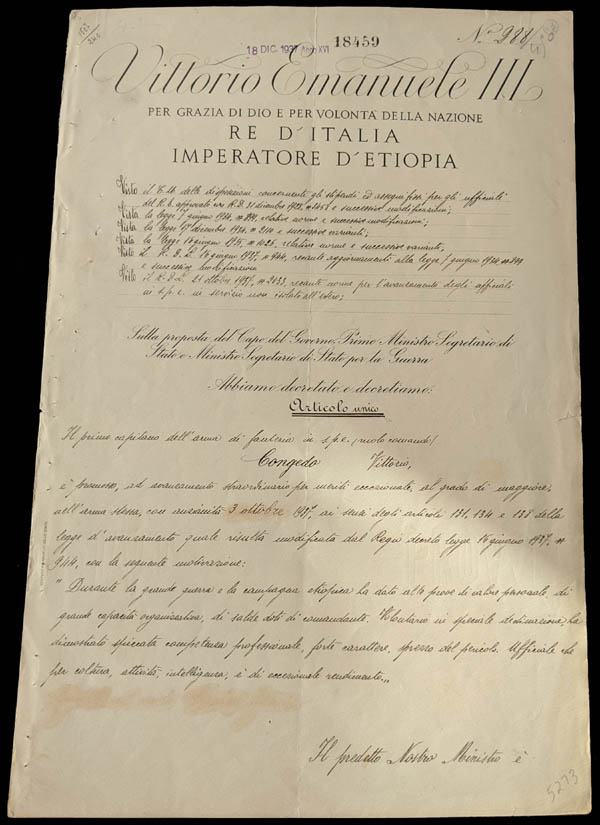 18 DIC. 1937 Anno XVI
18459
N. 288/
Vittorio Emanuele III
PER GRAZIA DI DIO E PER VOLONTA' DELLA NAZIONE
RE D'ITALIA
IMPERATORE D'ETIOPIA
Visto il T.U. delle disposizioni concernenti gli stipendi ed assegni fissi per gli ufficiali
del R.E. approvato con R.D. 31 dicembre 1928, n. 3458 e successive modificazioni;
Vista la legge 7 giugno 1934, n. 899, relative norme e successive modificazioni;
Vista la legge dicembre 1934, n. 2110 e successive varianti;
Vista la legge 14 giugno 1935, n. 1025, relative norme e successive varianti;
Visto il R.D.L. 14 giugno 1937, n. 944, recante aggiornamenti alla legge 7 giugno 1934 n. 899
e successive modificazioni
Visto il R.D.L. 21 ottobre 1937, n. 2033, recante norme per l'avanzamento degli ufficiali
in s.p.e. in servizio non isolato all'estero;
Sulla proposta del Capo del Governo, Primo Ministro Segretario di
Stato e Ministro Segretario di Stato per la Guerra
Abbiamo decretato e decretiamo:
Articolo unico
Il primo capitano dell'arma di fanteria in s.p.e. (ruolo comando)
Congedo Vittorio,
e' promosso, ad avanzamento straordinario per meriti eccezionali, al grado di maggiore,
nell'arma stessa, con anzianità 3 ottobre 1937 ai sensi degli articoli 131, 134 e 138 della
legge d'avanzamento quale risulta modificata dal Regio decreto legge 14 giugno 1937, n
944, con la seguente motivazione:
"Durante la grande guerra e la campagna etiopica ha dato alte prove di valore personale, di
grande capacità organizzativa, di salde doti di comandante. Volontario in speciale destinazione, ha
dimostrato spiccata competenza professionale, forte carattere, sprezzo del pericolo. Ufficiale che
per coltura, attività, intelligenza, è di eccezionale rendimento„
Il predetto Nostro Ministro è
5273